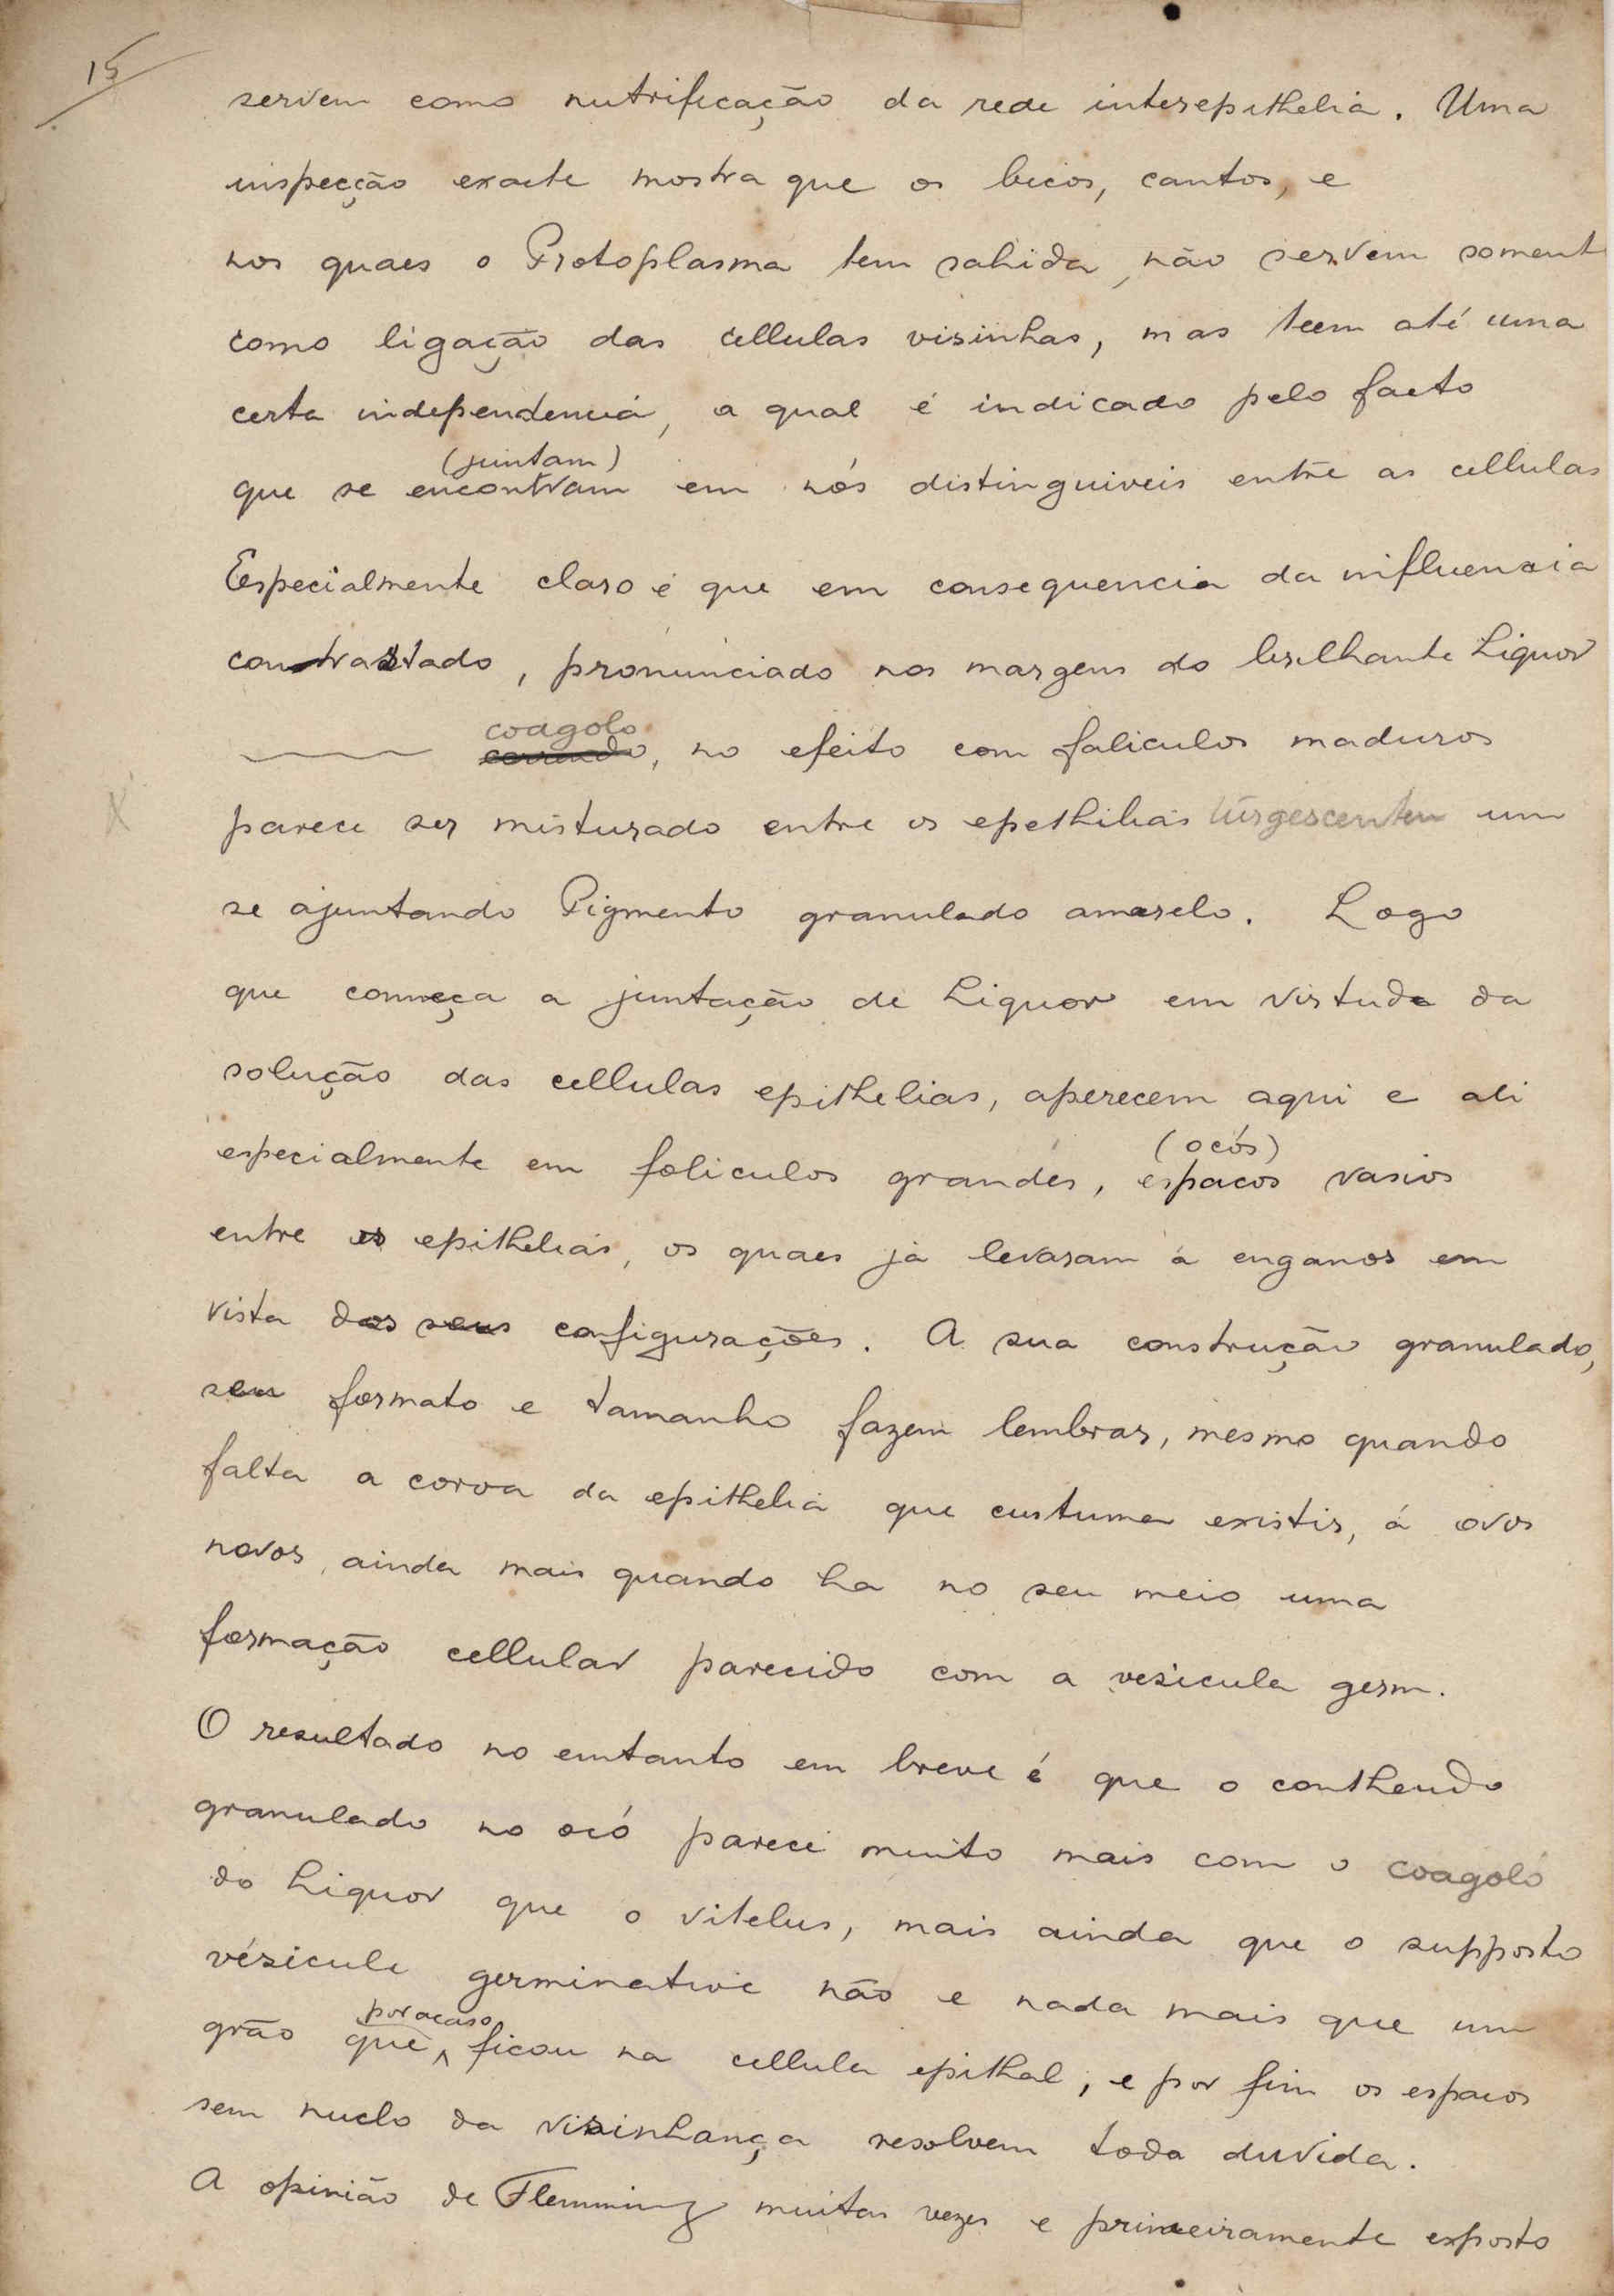 15
servem como nutrificação da rede interepithelia. Uma
inspecção exacte mostra que os bicos, cantos, e
nos quaes o Protoplasma tem sahida, não servem soment
como ligação das cellulas visinhas, mas teem até uma
certa independencia, a qual é indicado pelo facto
(juntam)
que se encontram em nós distinguiveis entre as cellulas
Especialmente claro é que em consequencia da influencia
contrastado, pronunciado nas margens do brilhante Liquor
coagolo
, no efeito com foliculos maduros
X
parece ser misturado entre os epethilias turgescenten um
se ajuntando Pigmento granulado amarelo. Logo
que começa a juntação de Liquor em virtude da
solução das cellulas epithelias, aperecem aqui e ali
(ocós)
especialmente em foliculos grandes, espacos vasios
entre os epithelias, os quaes já levaram á enganos em
vista das seus configurações. A sua construção granulado,
seu formato e tamanho fazem lembrar, mesmo quando
falta a coroa da epithelia que custuma existir, á ovos
novos, ainda mais quando ha no seu meio uma
formação cellular parecido com a vesicula germ.
O resultado no emtanto em breve é que o contheudo
granulado no ocó parece muito mais com o coagoló
do Liquor que o vitelus, mais ainda que o supposto
vésicule germinative não e nada mais que um
por acaso
grão que ^ ficou na cellula epithal, e por fim os espacos
sem nuclo da visinhança resolvem toda duvida.
A opinião de Flemming muitas vezes e primeiramente exposto